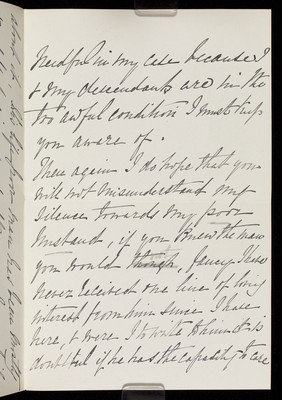 needful in my case because I
& my descendants are in the
too awful condition I must keep
you aware of.
Then again I do hope that you
will not misunderstand my
silence towards my poor
husband, if you knew the man
you would not, fancy I have
never received one line of loving
interest from him since I have
here, & were I to write to him it is
doubtful if he has the capacity to care